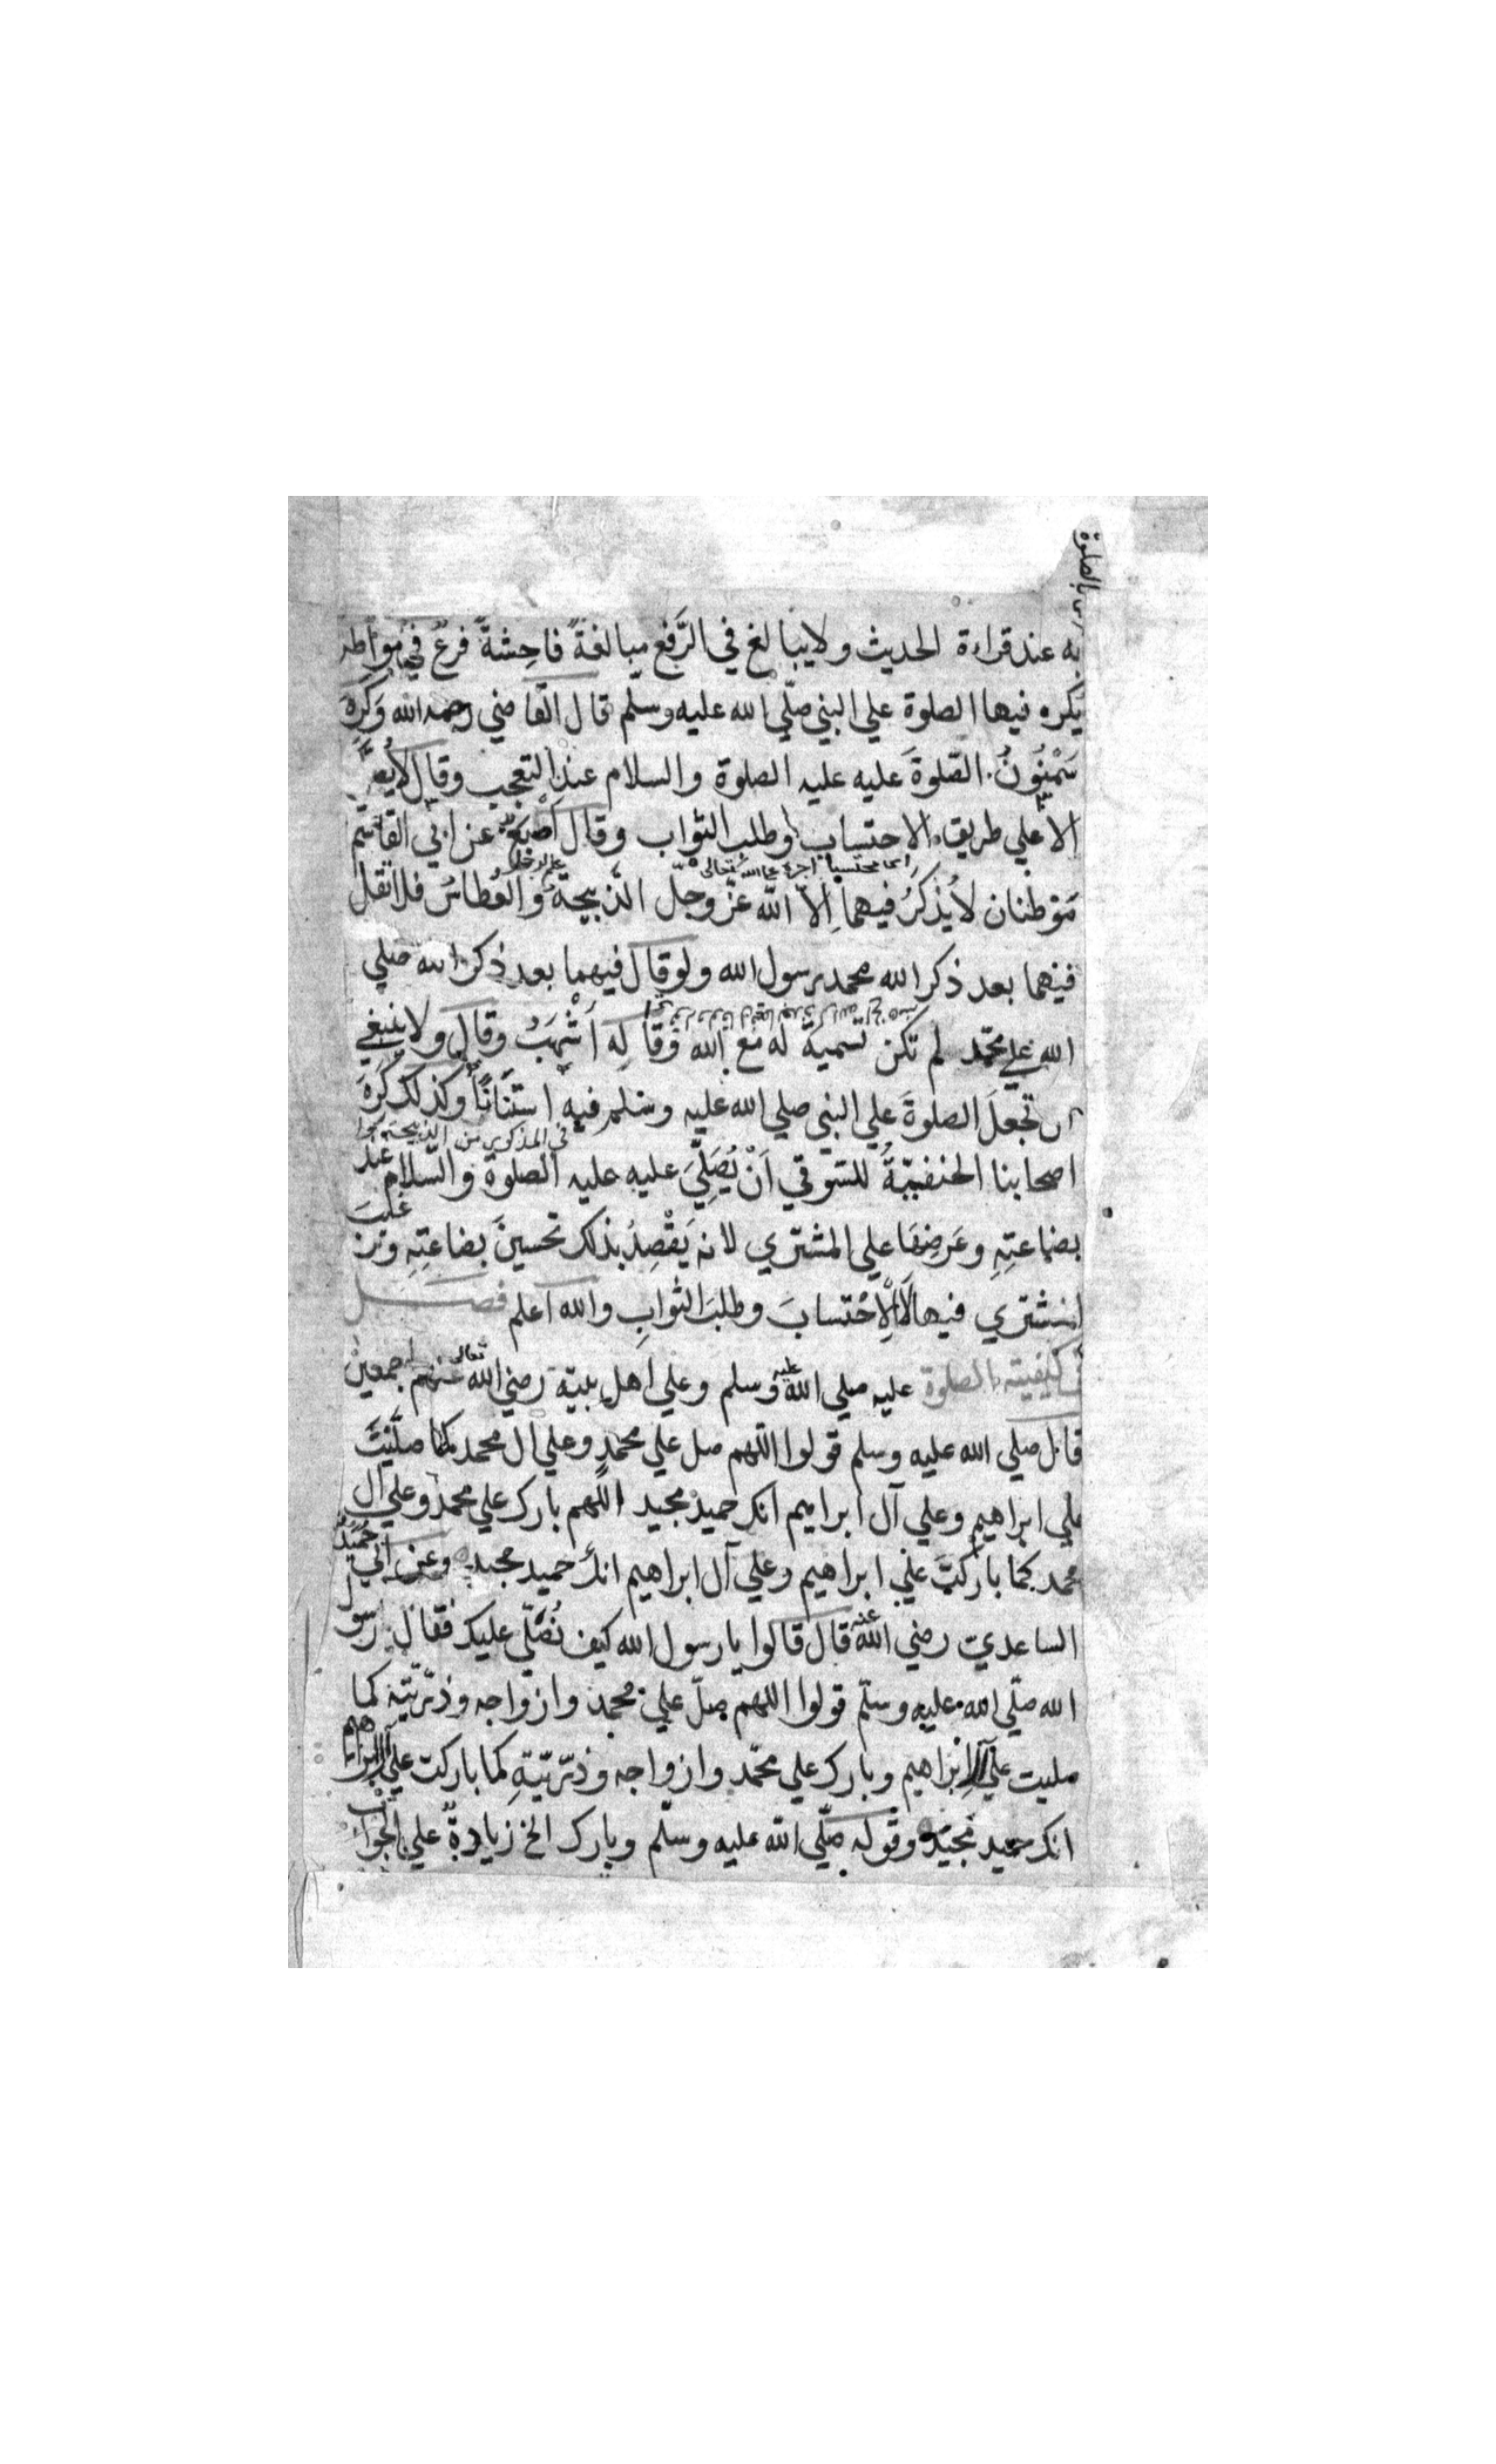 بالصلوة
به عند قراءة الحديث ولا يبالغ في الرَّفع مبالغةً فاحِشةً فرعٌ في مواطن
يكره فيها الصلوة علي النبي صلّي الله عليه وسلم قال القاضي رحمه الله وَكَرِهَ
سَحْنُونُ الصّلوةَ عليه عليه الصلوة والسلام عند التعجب وقال لا يصلَّي
الا علي طريق الاحتساب وطلب الثواب وقال اَصْبَغُ عن ابي القاسم
مَوْطنان لا يُذْكَرُ فيهما اِلاّ الله عزّ وجلّ الذَّبيحةُ والعُطاسُ فلا تقل
فيهما بعد ذكر الله محمد رسول الله ولو قال فيهما بعد ذكر الله صلي
الله علي محمّد لم تكن تسميةً له مع الله وقاله اَشْهَبُ وقال ولا ينبغي
ان تجعلَ الصلوةَ علي النبي صلي الله عليه وسلم فيه استنانًا وكذلك كَرِهَ
في المذكورين من الذبيحة
اصحابنا الحنفيّةُ للسّوقي اَنْ يُصَلِّيَ عليه عليه الصلوة والسّلام عند
بضاعتِهِ وعَرضِهَا علي المشتري لانه يَقْصِدُ بذلك تحسينَ بضاعتِهِ
المشتري فيها لاَ الْاِحْتسابَ وطلبَ الثوابِ والله اعلم فصل
في كيفيته الصلوة عليه صلي الله عليه وسلم وعلي اهل بيته رضي الله تعالي عنهم اجمعين
قال صلي الله عليه وسلم قولوا اللّهم صل علي محمدٍ وعلي ال محمد كما صلّيْتَ
علي ابراهيم وعلي آل ابراهيم انك حميد مجيد اللّهم بارك علي محمد وعلي آل
محمد كما باركتَ علي ابراهيم وعلي آل ابراهيم انك حميد مجيد وعن ابي حُمَيْدٍ
الساعديّ رضي الله عنه قال قالوا يا رسول الله كيف نُصَلّي عليك فقال رسول
الله صلّي الله عليه وسلّم قولوا اللهم صلّ علي محمد وازواجه وذرّيّته كما
صليت علي آل اِبْراهيم وبارك علي محمّد وازواجه وذرّيّتهِ كما باركت علي آل ابراهيم
انك حميد مجيد وقوله صلّي الله عليه وسلّم وبارك الخ زيادةٌ علي الجواب